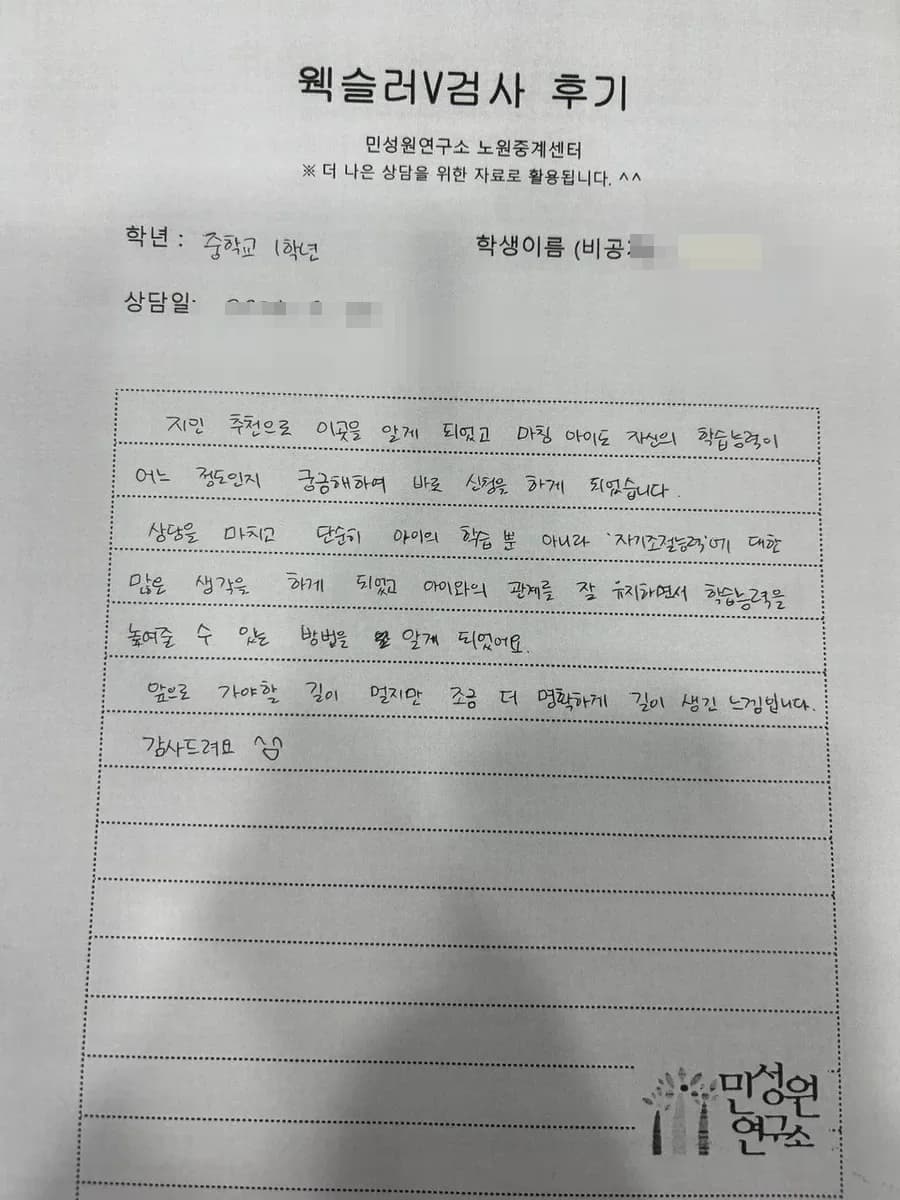 웩슬러V검사 후기
민성원연구소 노원중계센터
※ 더 나은 상담을 위한 자료로 활용됩니다. ^^
학년 : 중학교 1학년
학생이름 (비공
상담일
지인 추천으로 이곳을 알게 되었고 마침 아이도 자신의 학습능력이
어느 정도인지 궁금해하여 바로 신청을 하게 되었습니다.
상담을 마치고 단순히 아이의 학습 뿐 아니라 '자기조절능력'에 대한
많은 생각을 하게 되었고 아이와의 관계를 잘 유지하면서 학습능력을
높여줄 수 있는 방법을 알게 되었어요.
앞으로 가야할 길이 멀지만 조금 더 명확하게 길이 생긴 느낌입니다.
감사드려요 ^^
민성원
연구소